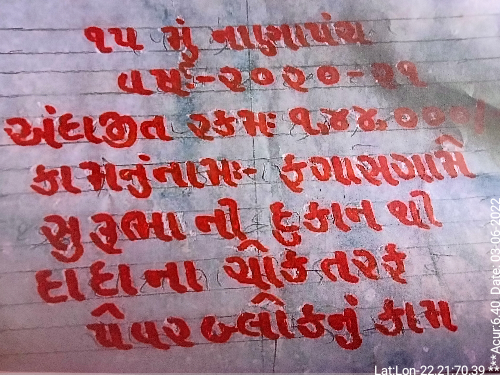 ૧૫ મું નાણાપંચ
વર્ષઃ-૨૦૨૦-૨૧
અંદાજીત રકમઃ ૧,૪૪,૦૦૦/
કામનુંનામઃ- ફગાસગામે
સુરૂભા ની દુકાન થી
દાદાના ચોક તરફ
પેવર બ્લોકનું કામ
Lat:Lon-22.21:70.39
***Acur:6.40 Date: 03-06-2022